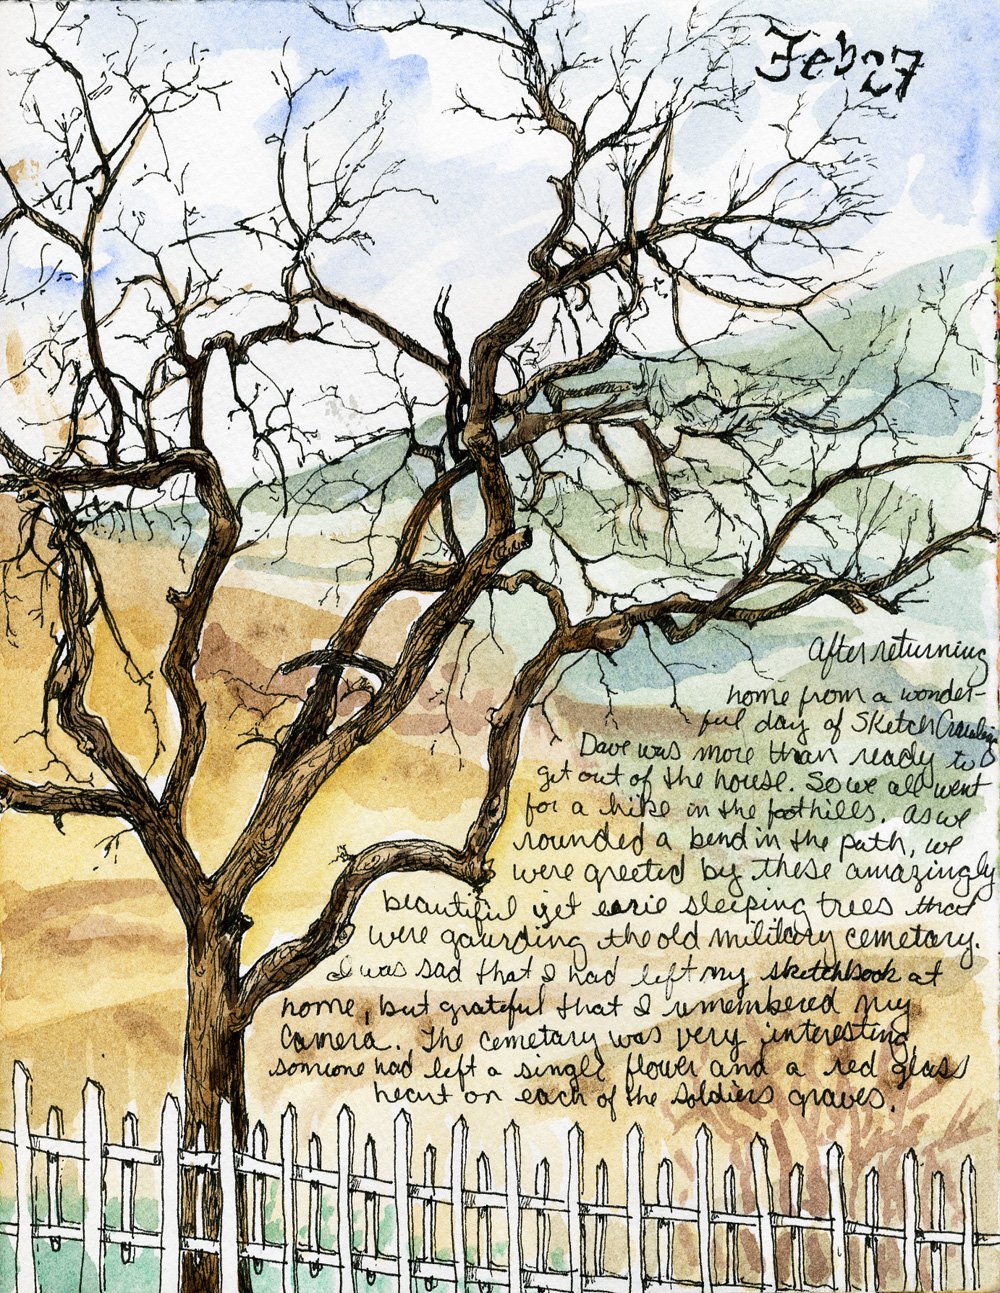 Feb 27
After returning
home from a wonder-
ful day of SketchCrawling
Dave was more than ready to
get out of the house. So we all went
for a hike in the foothills. As we
rounded a bend in the path, we
were greeted by these amazingly
beautiful yet eerie sleeping trees that
were gaurding the old military cemetary.
I was sad that I had left my sketchbook at
home, but grateful that I remembered my
Camera. The cemetary was very interesting
someone had left a single flower and a red glass
heart on each of the soldiers graves.